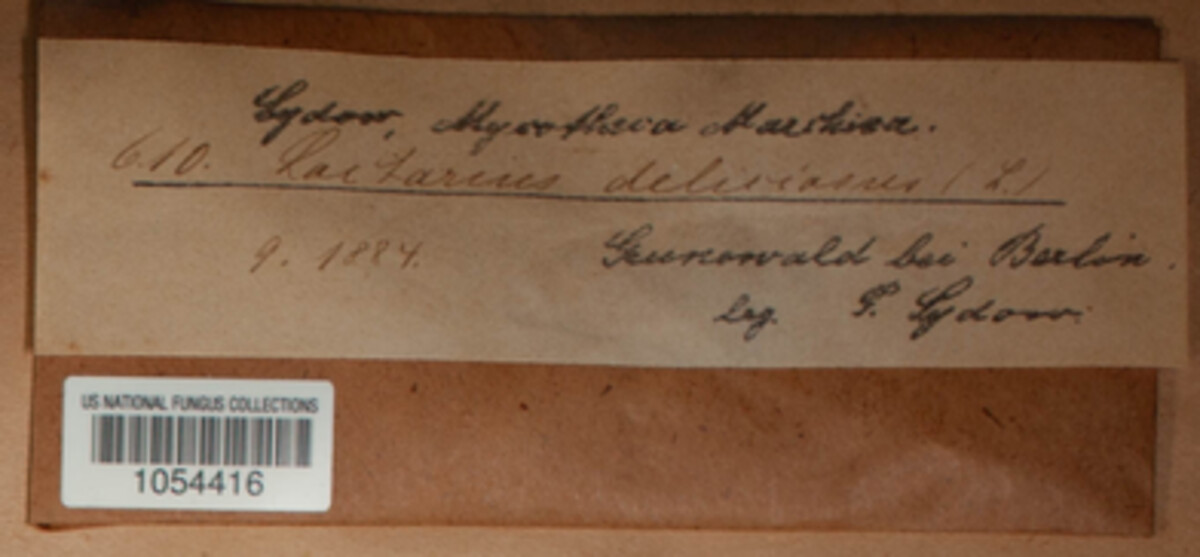 Sydow, Mycotheca Marchica.
610. Lactarius deliciosus (L.)
9. 1884.
Grunewald bei Berlin.
leg. P. Sydow.
US NATIONAL FUNGUS COLLECTIONS
1054416